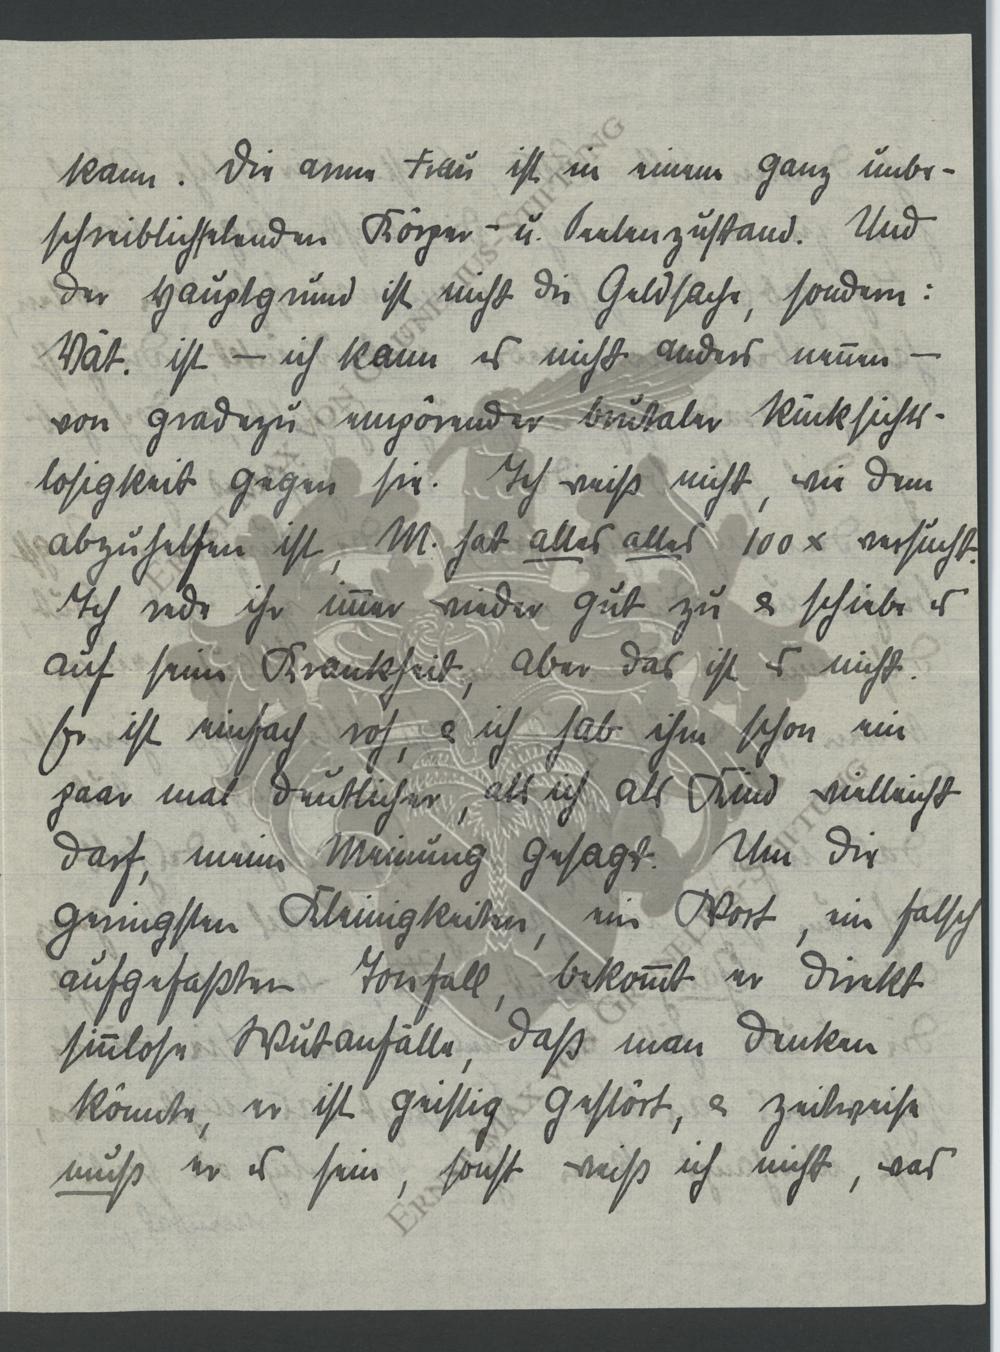 kann. Die arme Frau ist in einem ganz unbe-
schreiblich elenden Körper- u. Seelenzustand. Und
der Hauptgrund ist nicht die Geldsache, sondern:
Vat. ist — ich kann es nicht anders nennen —
von gradezu empörender brutaler Rücksichts-
losigkeit gegen sie. Ich weiß nicht, wie dem
abzuhelfen ist, M. hat alles alles 100 x versucht.
Ich rede ihr im̄er wieder gut zu & schiebe es
auf seine Krankheit, aber das ist es nicht.
Er ist einfach roh, & ich hab ihm schon ein
paar mal deutlicher, als ich als Kind vielleicht
darf, meine Meinung gesagt. Um die
geringsten Kleinigkeiten, ein Wort, ein falsch
aufgefaßter Tonfall, bekom̄t er direkt
sin̄lose Wutanfälle, daß man denken
könnte, er ist geistig gestört, & zeitweise
muß er es sein, sonst weiß ich nicht, was
ERNST MAX VON GRUNELIUS-STIFTUNG
ERNST MAX VON GRUNELIUS-STIFTUNG